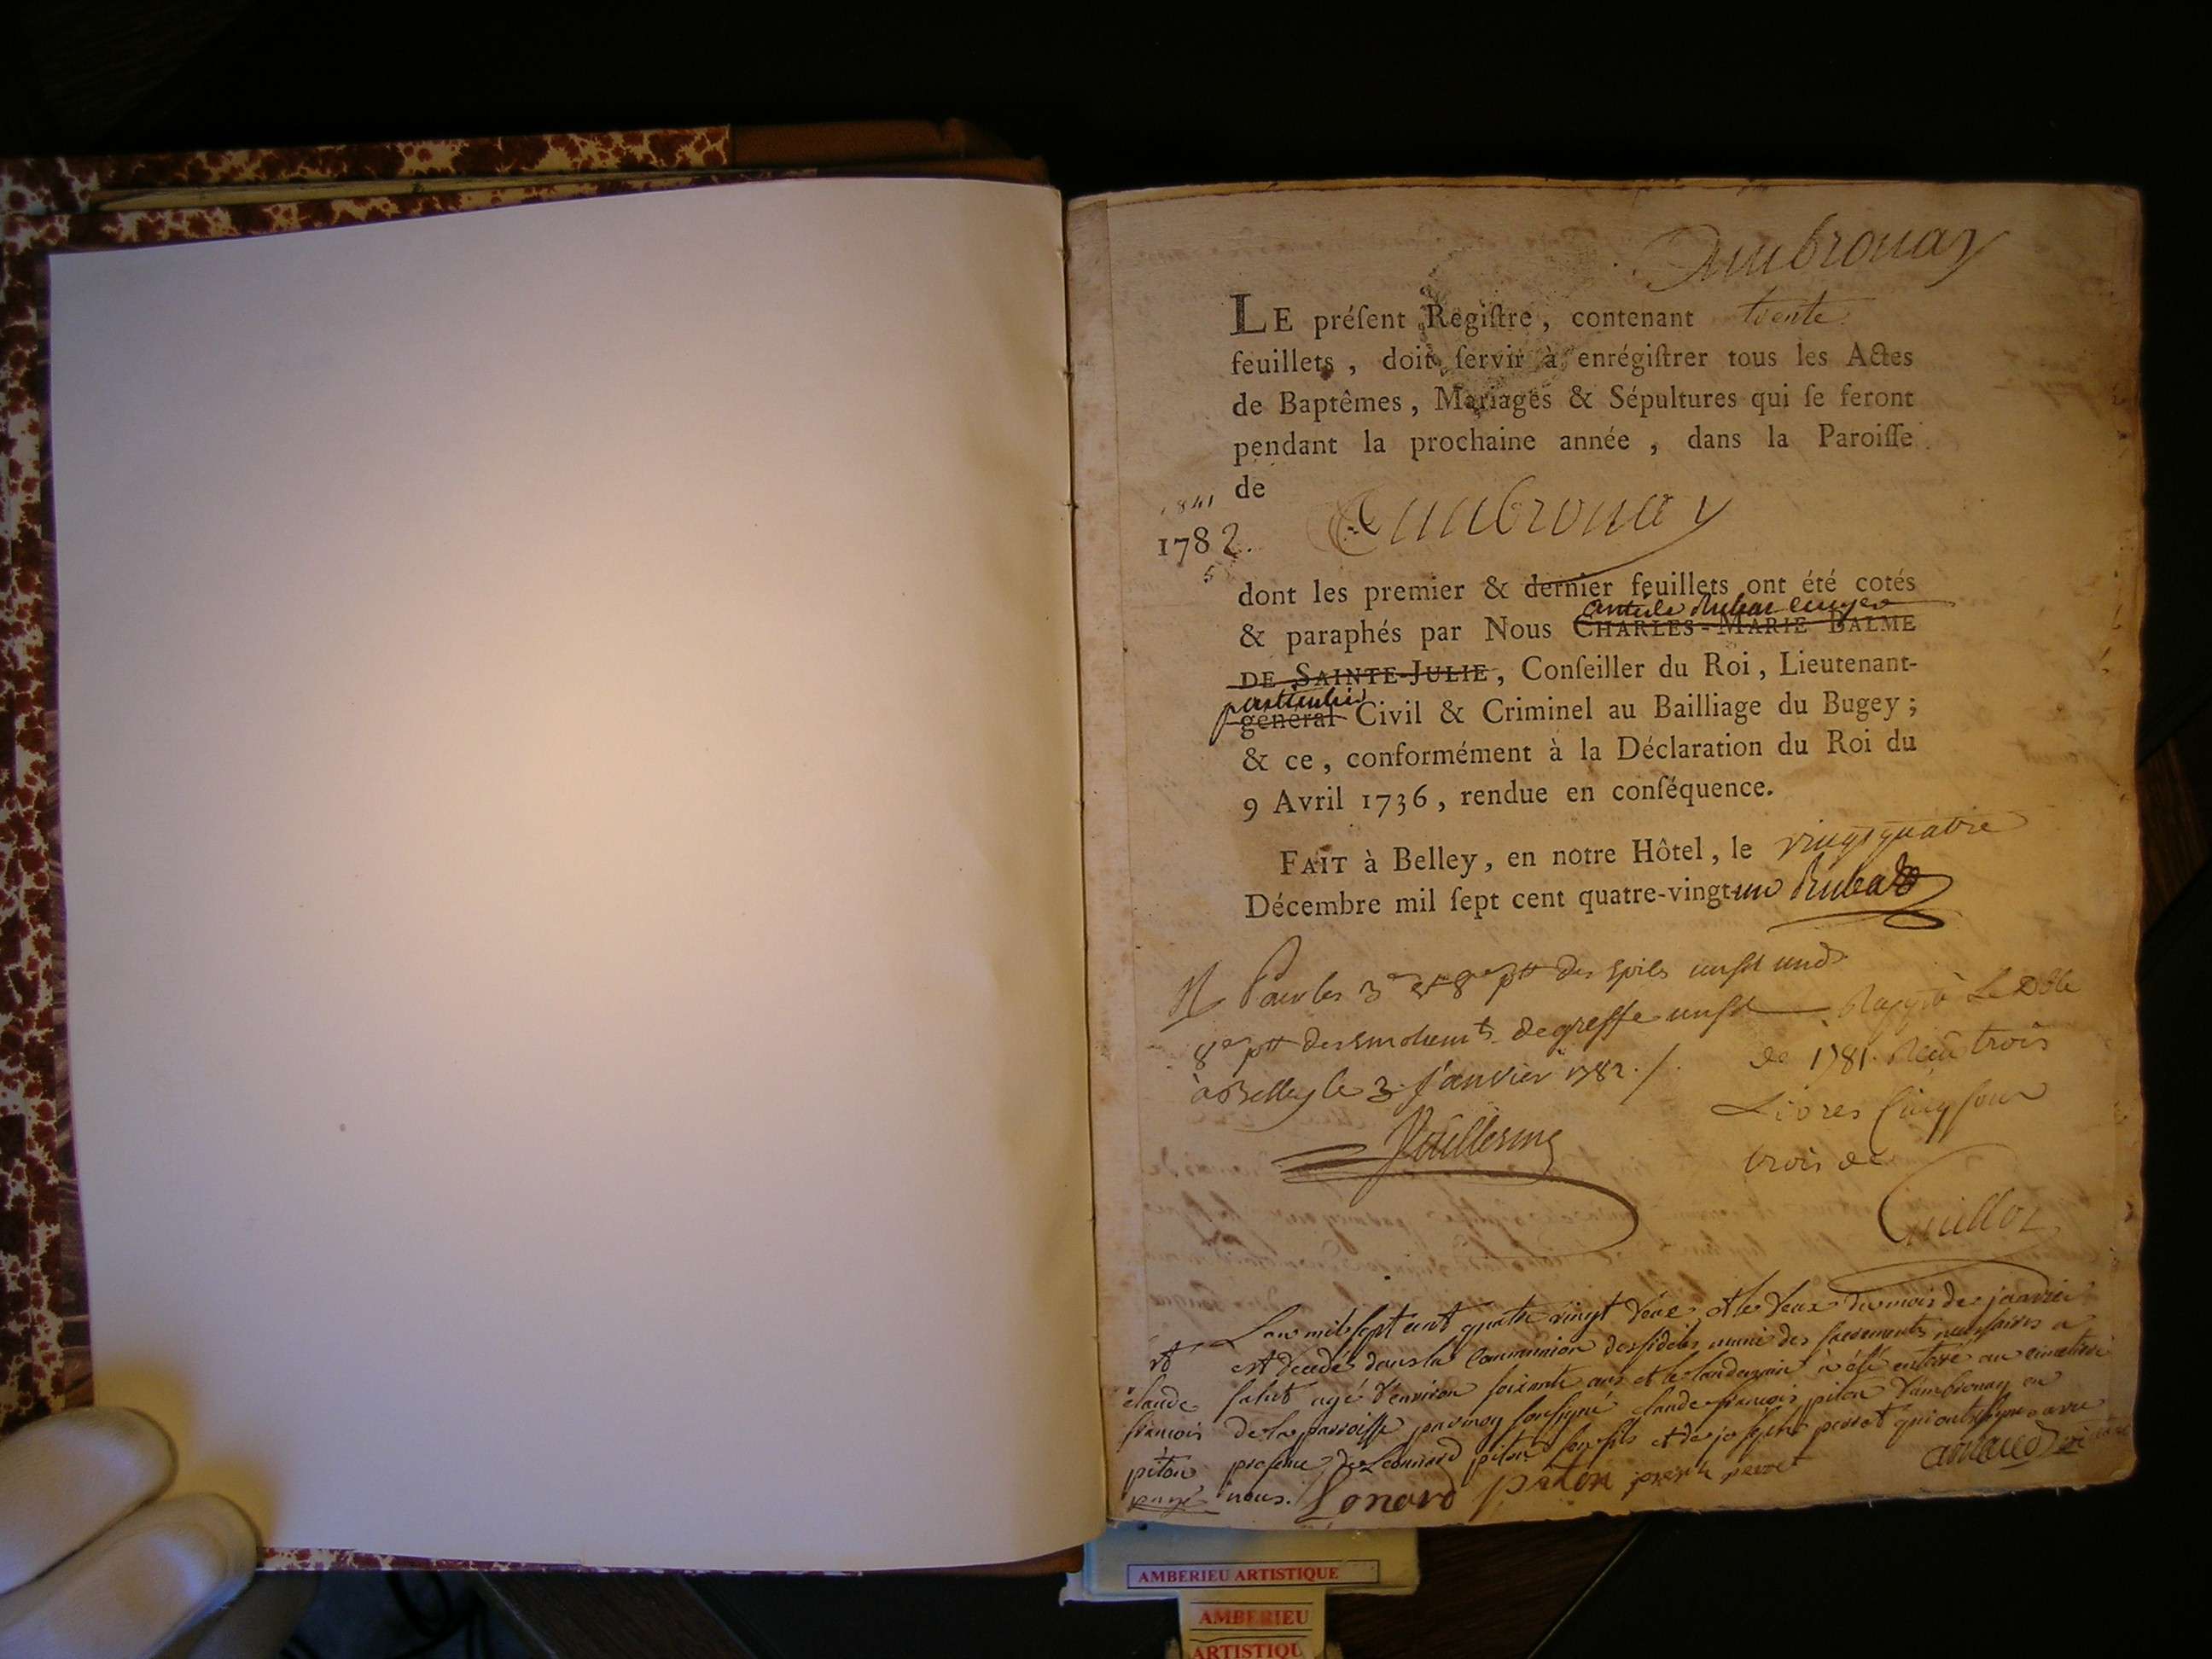 Ambronay
LE préſent Regiſtre, contenant trente
feuillets, doit ſervir à enrégiſtrer tous les Actes
de Baptêmes, Mariages & Sépultures qui ſe feront
pendant la prochaine année, dans la Paroiſſe
de
1841
1782.
5
Ambronay
dont les premier & dernier feuillets ont été cotés
& paraphés par Nous CHARLES-MARIE BALME
DE SAINTE-JULIE, Conſeiller du Roi, Lieutenant-
particulier
général Civil & Criminel au Bailliage du Bugey;
& ce, conformément à la Déclaration du Roi du
9 Avril 1736, rendue en conſéquence.
FAIT à Belley, en notre Hôtel, le vingt quatre
Décembre mil ſept cent quatre-vingt-un Rubat
Pour les 3 des
de greffe
à Belley le 3 Janvier 1782 ./.
de 1781. Reçu trois
Livres cinq sous
trois de
Guillot
L'an mil sept cent quatre vingt deux et le deux du mois de janvier
est décédé dans la communion des fidèles muni des sacrements nécessaires a
salut agé d'environ soixante ans et le landemain à été enterré au cimetiere
de la parroisse par moy soussigné claude françois piton d'ambronay en
presence de Leonard piton son fils et de joseph perret qui ont signé avec
nous. Lonard piton joseph perret
claude
françois
piton
payé
AMBERIEU ARTISTIQUE
AMBERIEU
ARTISTIQU